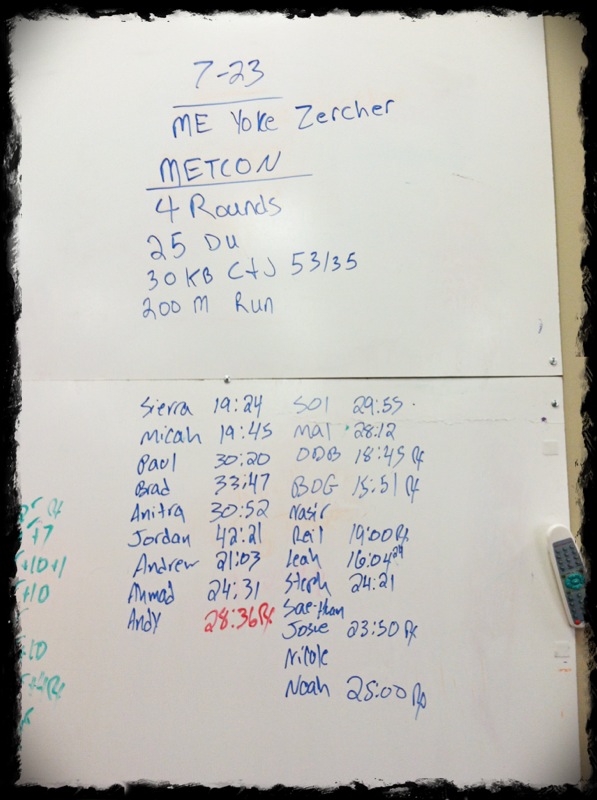 7-23
ME Yoke Zercher
METCON
4 Rounds
25 DU
30 KB C+J 53/35
200 M Run
Sierra 19:24
Micah 19:45
Paul 30:20
Brad 33:47
Anitra 30:52
Jordan 42:21
Andrew 21:03
Ahmad 24:31
Andy 28:36 Rx
SOI 29:55
Mal 28:12
ODB 18:45 Rx
BDG 15:51 Rx
Nasir
Reil 19:00 Rx
Leah 16:04 24
Steph 24:21
Sae-than
Josie 23:50 Rx
Nicole
Noah 25:00 Rx
+7
+10+1
+10
+10